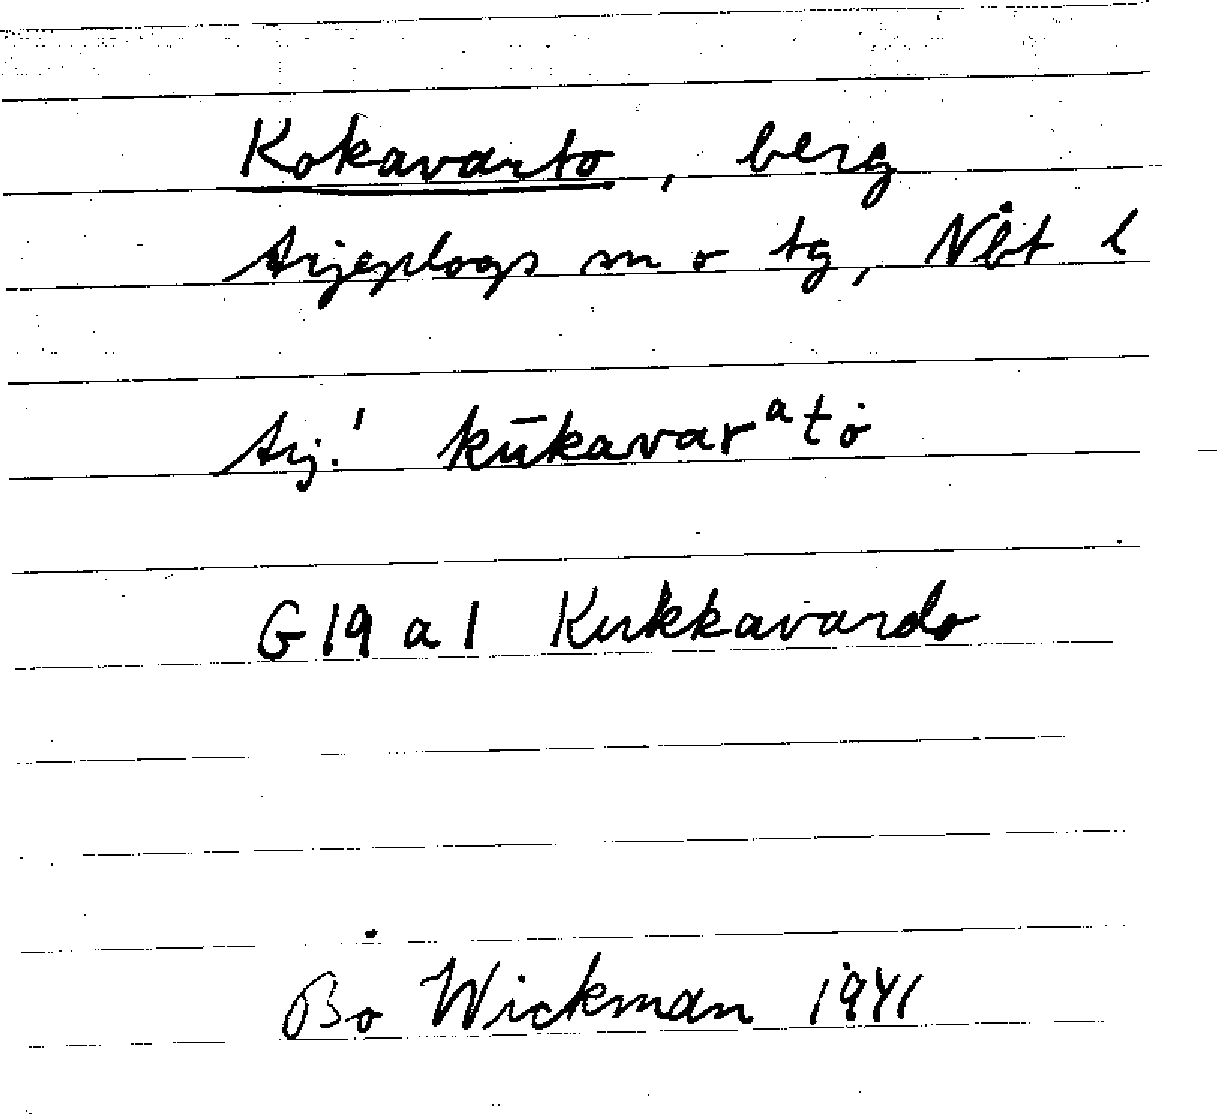 Kokavarto, berg
Arjeplogs sn o tg, Nbt l
Arj.! kūkavarᵃtȯ
G19 a 1 Kukkavardo
Bo Wickman 1941